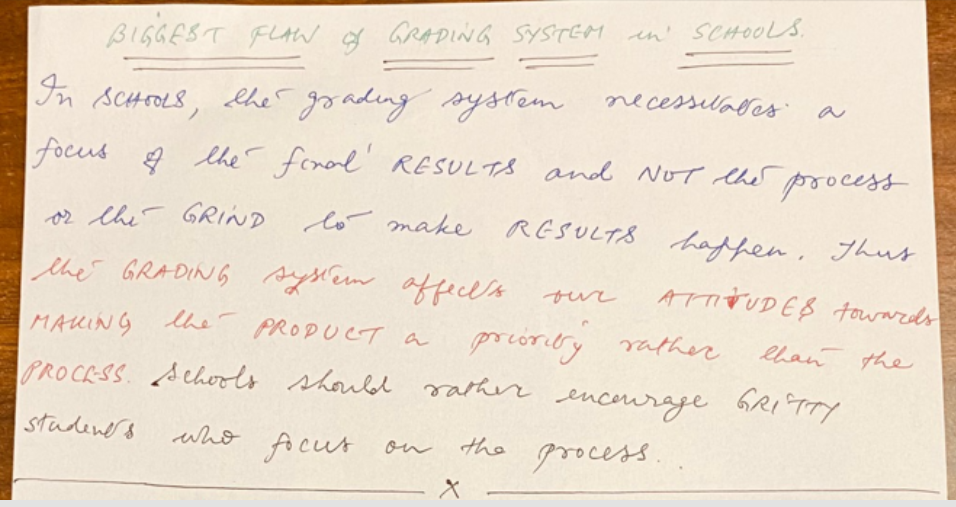 BIGGEST FLAW of GRADING SYSTEM in SCHOOLS.
In SCHOOLS, the grading system necessitates a
focus of the final RESULTS and NOT the process
or the GRIND to make RESULTS happen. Thus
the GRADING system affects our ATTITUDES towards
MAKING the PRODUCT a priority rather than the
PROCESS. Schools should rather encourage GRITTY
students who focus on the process.
X